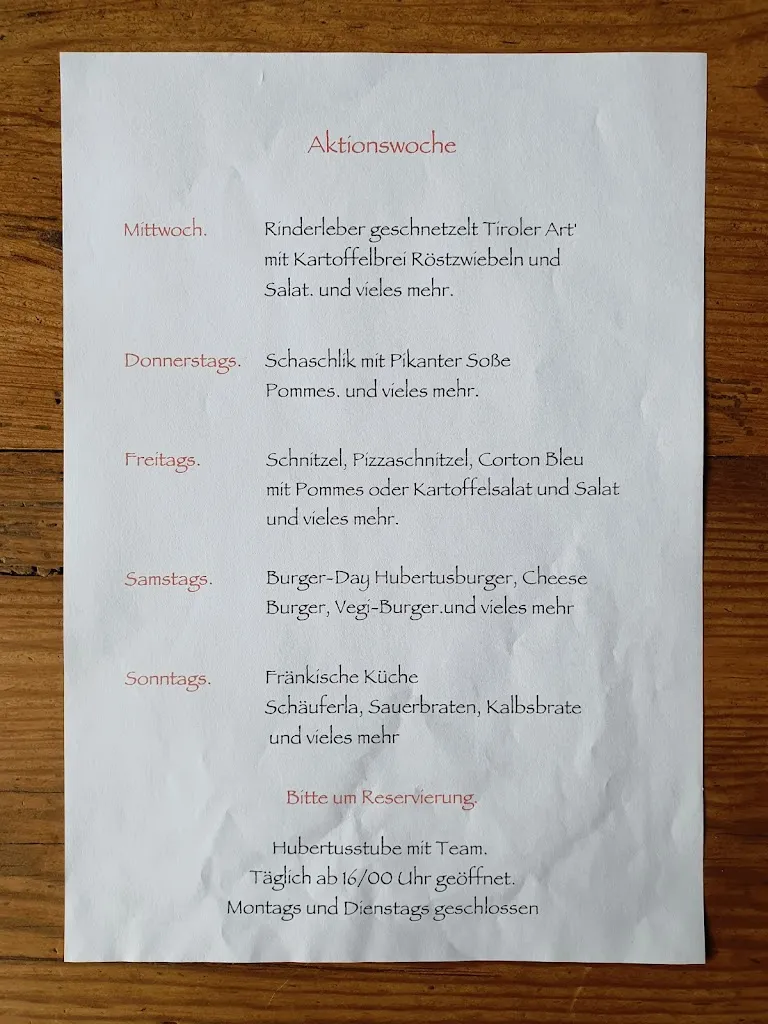 Aktionswoche
Mittwoch. Rinderleber geschnetzelt Tiroler Art'
mit Kartoffelbrei Röstzwiebeln und
Salat. und vieles mehr.
Donnerstags. Schaschlik mit Pikanter Soße
Pommes. und vieles mehr.
Freitags. Schnitzel, Pizzaschnitzel, Corton Bleu
mit Pommes oder Kartoffelsalat und Salat
und vieles mehr.
Samstags. Burger-Day Hubertusburger, Cheese
Burger, Vegi-Burger.und vieles mehr
Sonntags. Fränkische Küche
Schäuferla, Sauerbraten, Kalbsbrate
und vieles mehr
Bitte um Reservierung.
Hubertusstube mit Team.
Täglich ab 16/00 Uhr geöffnet.
Montags und Dienstags geschlossen